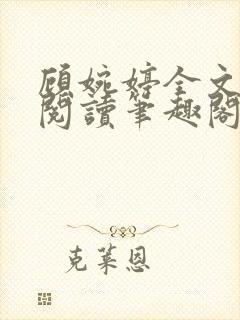 顾婉婷全文
閱讀筆趣閣
克萊恩